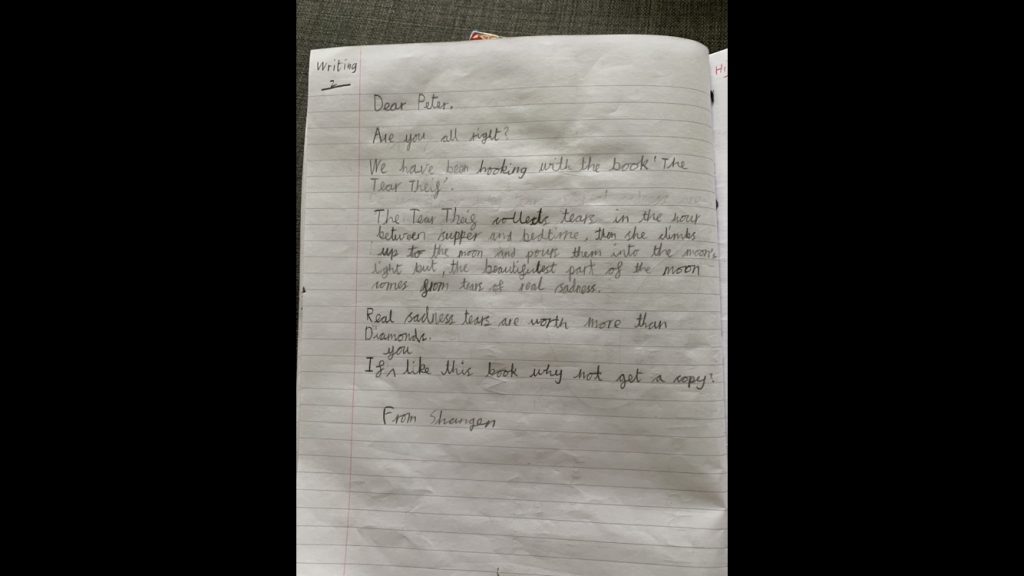 Writing
2
Dear Peter.
Are you all right?
We have been hooking with the book 'The
Tear Theif'.
The Tear Theif collects tears in the hour
between supper and bedtime, then she climbs
up to the moon and pours them into the moon's
light but, the beautifulest part of the moon
comes from tears of real sadness.
Real sadness tears are worth more than
Diamonds.
you
If ^ like this book why not get a copy?
From Shangen
Hi